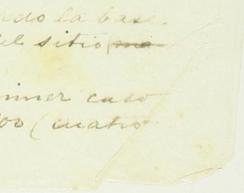 ndo la base
del sitio
imer caso
00 (cuatro